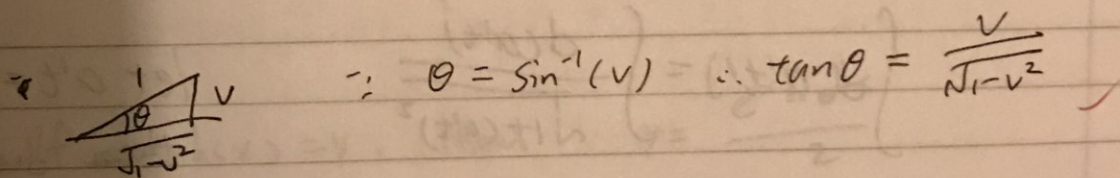 1 θ v √1-v² ∵ θ = sin⁻¹(v) ∴ tanθ = v/√1-v²